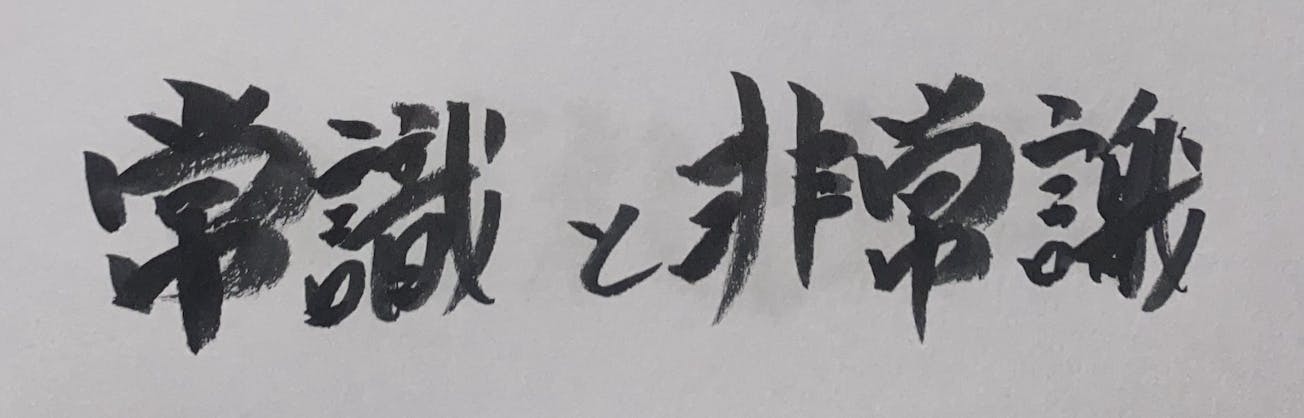 常識と非常識